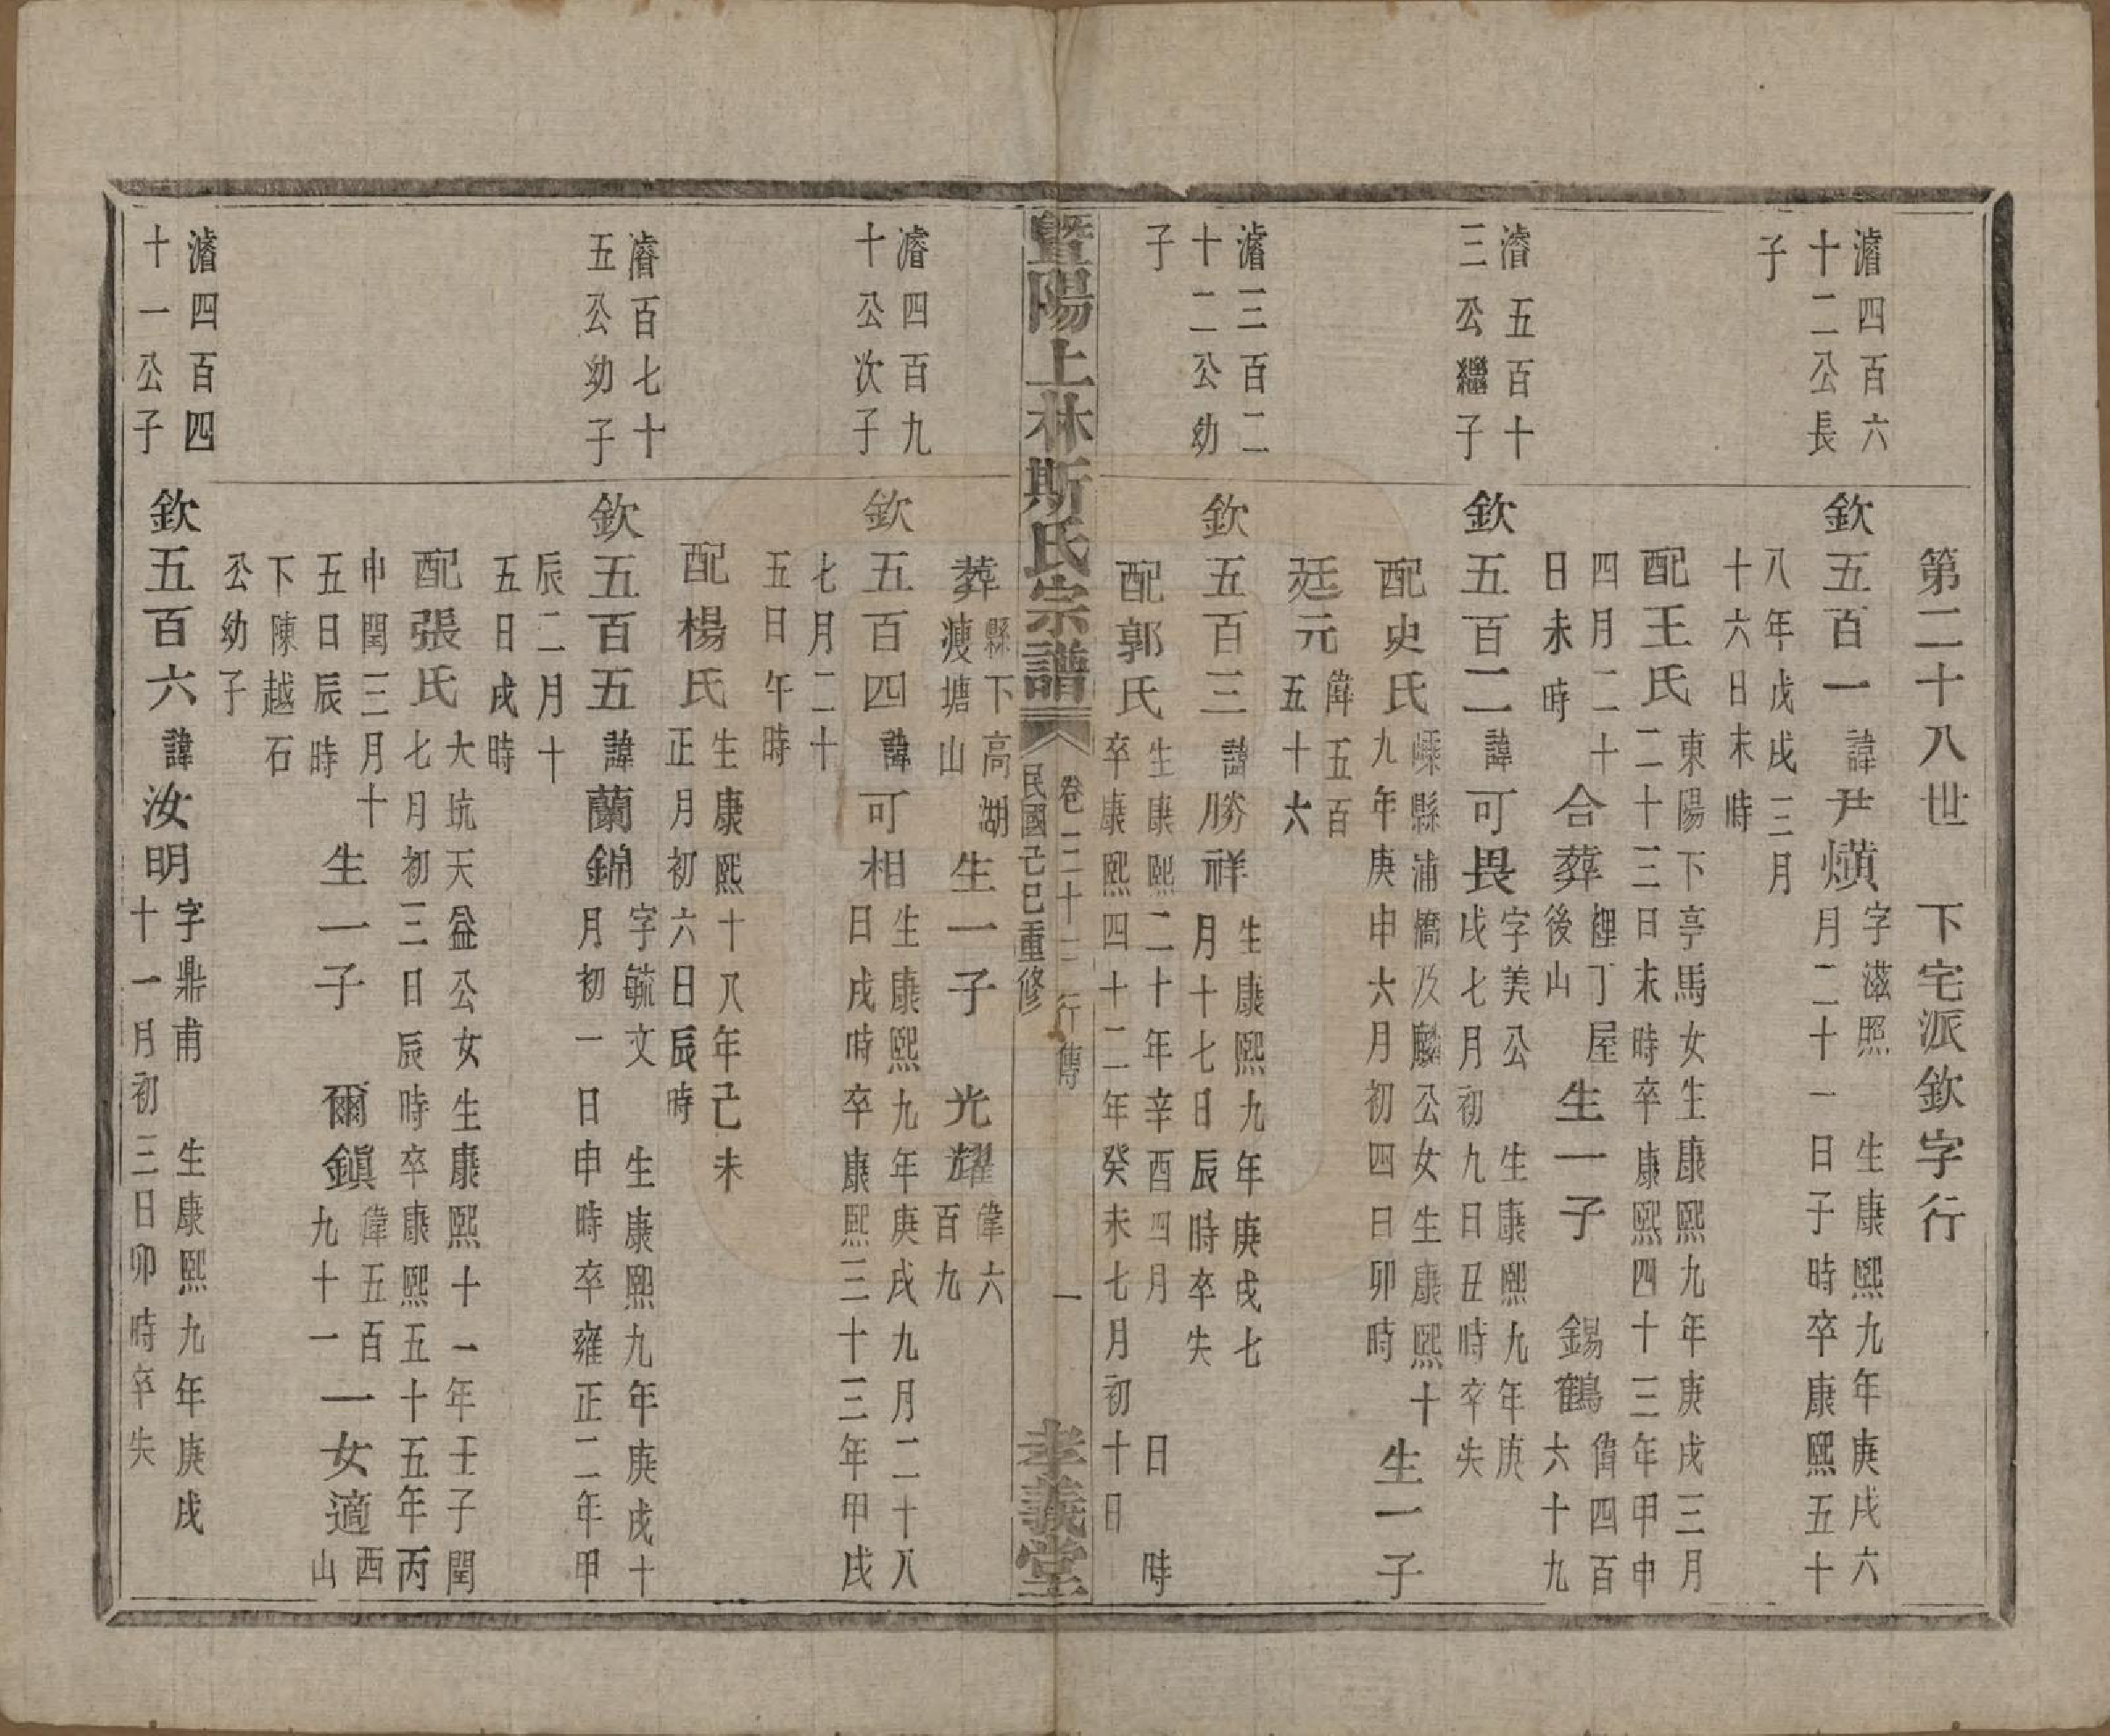 第二十八世　下宅派欽字行
濬四百六
十二公長
子
欽五百一諱尹熿
字滋照　生康熙九年庚戌六
月二十一日子時卒康熙五十
八年戊戌三月
十六日未時
配王氏
東陽下亭馬女生康熙九年庚戌三月
二十三日未時卒康熙四十三年甲申
四月二十
日未時
合葬
裡丁屋
後山
生一子　錫鶴
偉四百
六十九
濬五百十
三公繼子
欽五百二諱可畏
字美公　生康熙九年庚
戌七月初九日丑時卒失
配史氏
嵊縣浦橋及麟公女生康熙十
九年庚申六月初四日卯時
生一子
廷元
偉五百
五十六
濬三百二
十二公幼
子
欽五百三諱勝祥
生康熙九年庚戌七
月十七日辰時卒失
配郭氏
生康熙二十年辛酉四月　日　時
卒康熙四十二年癸未七月初十日
暨陽上林斯氏宗譜
卷二十二 行傳
民國己巳重修
一
孝義堂
葬
縣下高湖
瘦塘山
生一子　光耀
偉六
百九
濬四百九
十公次子
欽五百四諱可相
生康熙九年庚戌九月二十八
日戌時卒康熙三十三年甲戌
七月二十
五日午時
配楊氏
生康熙十八年己未
正月初六日辰時
濬百七十
五公幼子
欽五百五諱蘭錦
字毓文　生康熙九年庚戌十
月初一日申時卒雍正二年甲
辰二月十
五日戌時
配張氏
大坑天益公女生康熙十一年壬子閏
七月初三日辰時卒康熙五十五年丙
申閏三月十
五日辰時
生一子　爾鎮
偉五百
九十一
一女適
西
山
下陳越石
公幼子
濬四百四
十一公子
欽五百六諱汝明
字鼎甫　生康熙九年庚戌
十一月初三日卯時卒失